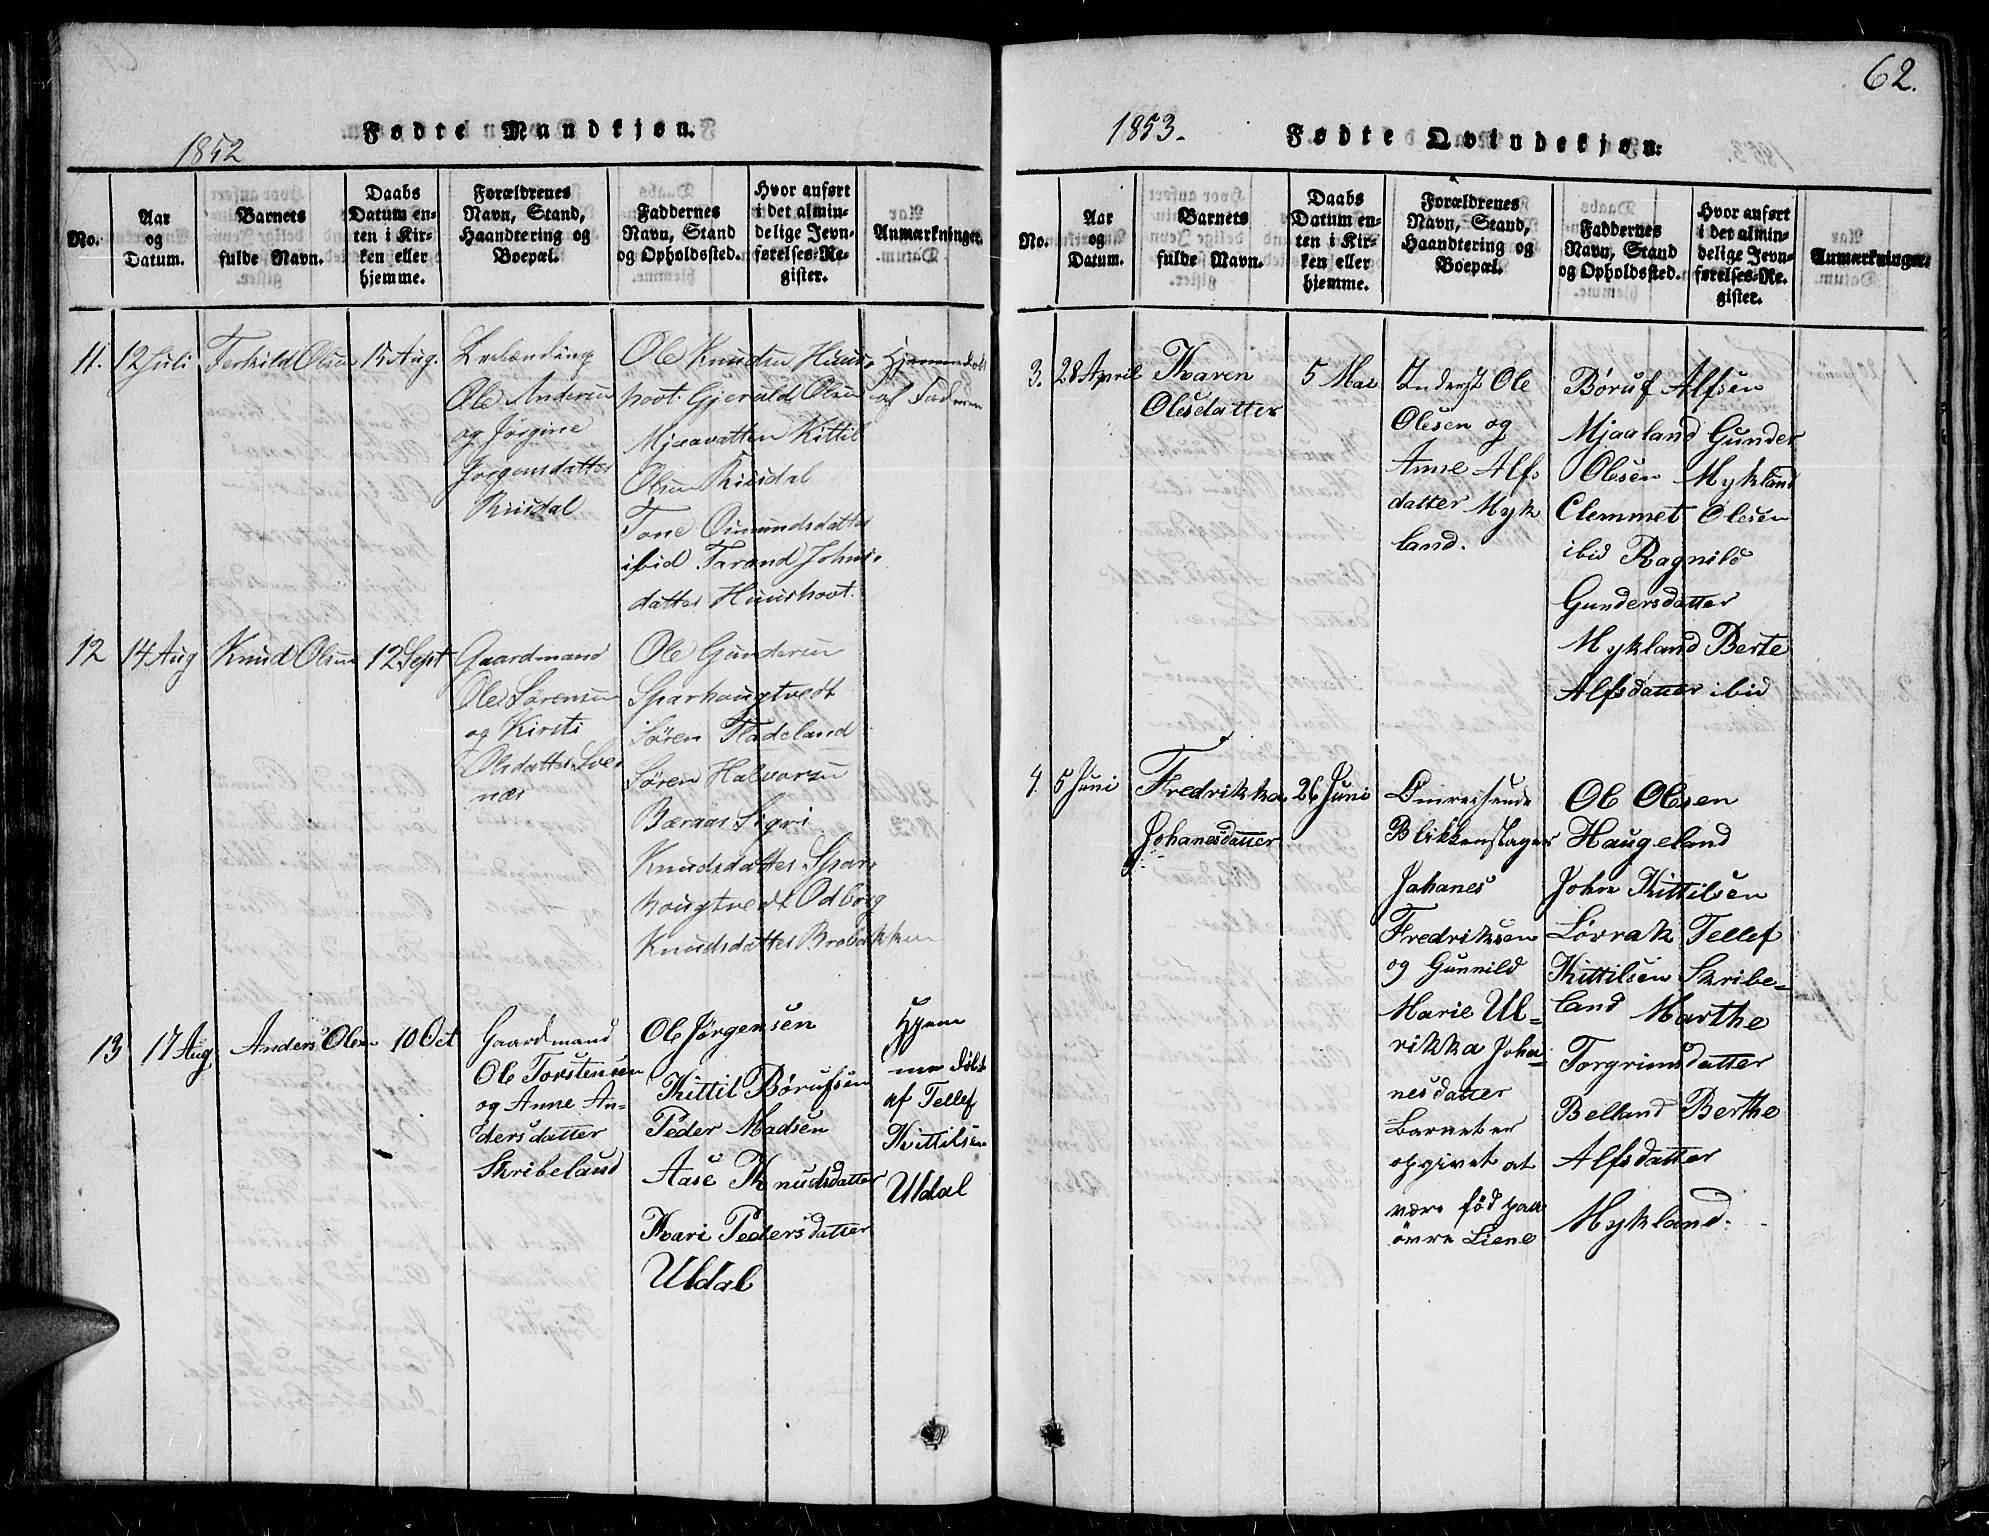 1852
Fødte Mandkjøn.
No.
Aar
og
Datum.
Barnets
fulde Navn.
Daabs
Datum en-
ten i Kir-
ken eller
hjemme.
Forældrenes
Navn, Stand,
Haandtering og
Boepæl.
Faddernes
Navn, Stand
og Opholdssted.
Hvor anført
i det almin-
delige Jevn-
førelses-Re-
gister.
Anmærkninger.
11.
12 Juli
Terkild Olsen
15 Aug.
Ole Andersen
og Jørgine
Jørgensdatter
Risdal
Ole Knudsen Huus-
hovt. Gjerald Olsen
Mjaavatten Kittil
Olsen Risdal
Tone Omundsdatter
ibid Tarand Johns-
datter Huushovt.
Hjemmedøbt
af Faderen
12
14 Aug
Knud Olsen
12 Sept
Gaardmand
Ole Sørensen
og Kirsti
Olsdatter Sves
næs
Ole Gundersen
Sparhougtvedt
Søren Fladeland
Søren Halvorsen
Bæraas Sigri
Knudsdatter Spar-
hougtvedt Odborg
Knudsdatter Brobakken
13
17 Aug
Anders Olsen
10 Oct
Gaardmand
Ole Torstensen
og Anne An-
dersdatter
Skribeland
Ole Jørgensen
Kittil Børufsen
Peder Madsen
Aase Knudsdatter
Kari Pedersdatter
Uldal
Hjem
me døbt
af Tellef
Kittilsen
Uldal
62.
1853.
Fødte Qvindekjøn.
No.
Aar
og
Datum.
Barnets
fulde Navn.
Daabs
Datum en-
ten i Kir-
ken eller
hjemme.
Forældrenes
Navn, Stand,
Haandtering og
Boepæl.
Faddernes
Navn, Stand
og Opholdssted.
Hvor anført
i det almin-
delige Jevn-
førelses-Re-
gister.
Anmærkninger.
3.
28 April
Karen
Olesdatter
5 Mai
Inderst Ole
Olesen og
Anne Alfs
datter Myk
land.
Børuf Alfsen
Mjaaland Gunder
Olesen Mykland
Clemmet Olesen
ibid Ragnild
Gundersdatter
Mykland Berte
Alfsdatter ibid
4.
5 Juni
Fredrikka
Johanesdatter
26 Juni
Omreisende
Blikkenslager
Johanes
Fredriksen
og Gunnild
Marie Ul-
rikka Joha-
nesdatter
Barnet er
opgivet at
være fød paa
øvre Liene
Ole Olsen
Haugeland
John Kittilsen
Lørrak Tellef
Kittilsen Skribe-
land Marthe
Torgrimsdatter
Belland Berthe
Alfsdatter
Mykland.